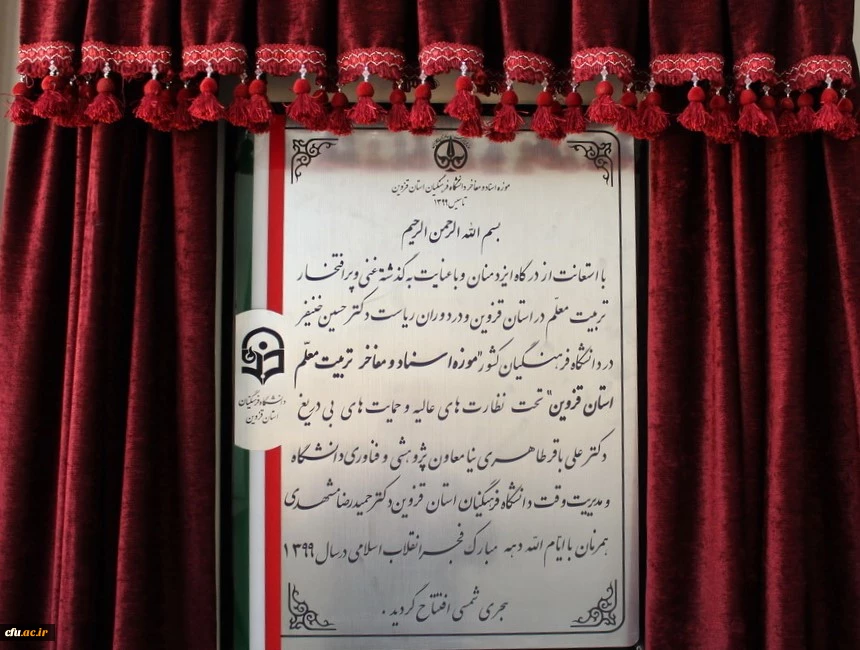 موزه اسناد و مفاخر دانشگاه فرهنگیان استان قزوین
تاسیس ۱۳۹۹
بسم الله الرحمن الرحیم
با استعانت از درگاه ایزد منان و با عنایت به گذشته غنی و پر افتخار
تربیت معلّم در استان قزوین و در دوران ریاست دکتر حسین خنیفر
در دانشگاه فرهنگیان کشور "موزه اسناد و مفاخر تربیت معلّم
استان قزوین" تحت نظارت های عالیه و حمایت های بی دریغ
دکتر علی باقر طاهری نیا معاون پژوهشی و فناوری دانشگاه
و مدیریت وقت دانشگاه فرهنگیان استان قزوین دکتر حمید رضا مشهدی
همزمان با ایّام الله دهه مبارک فجر انقلاب اسلامی در سال ۱۳۹۹
هجری شمسی افتتاح گردید .
دانشگاه فرهنگیان
استان قزوین
cfu.ac.ir